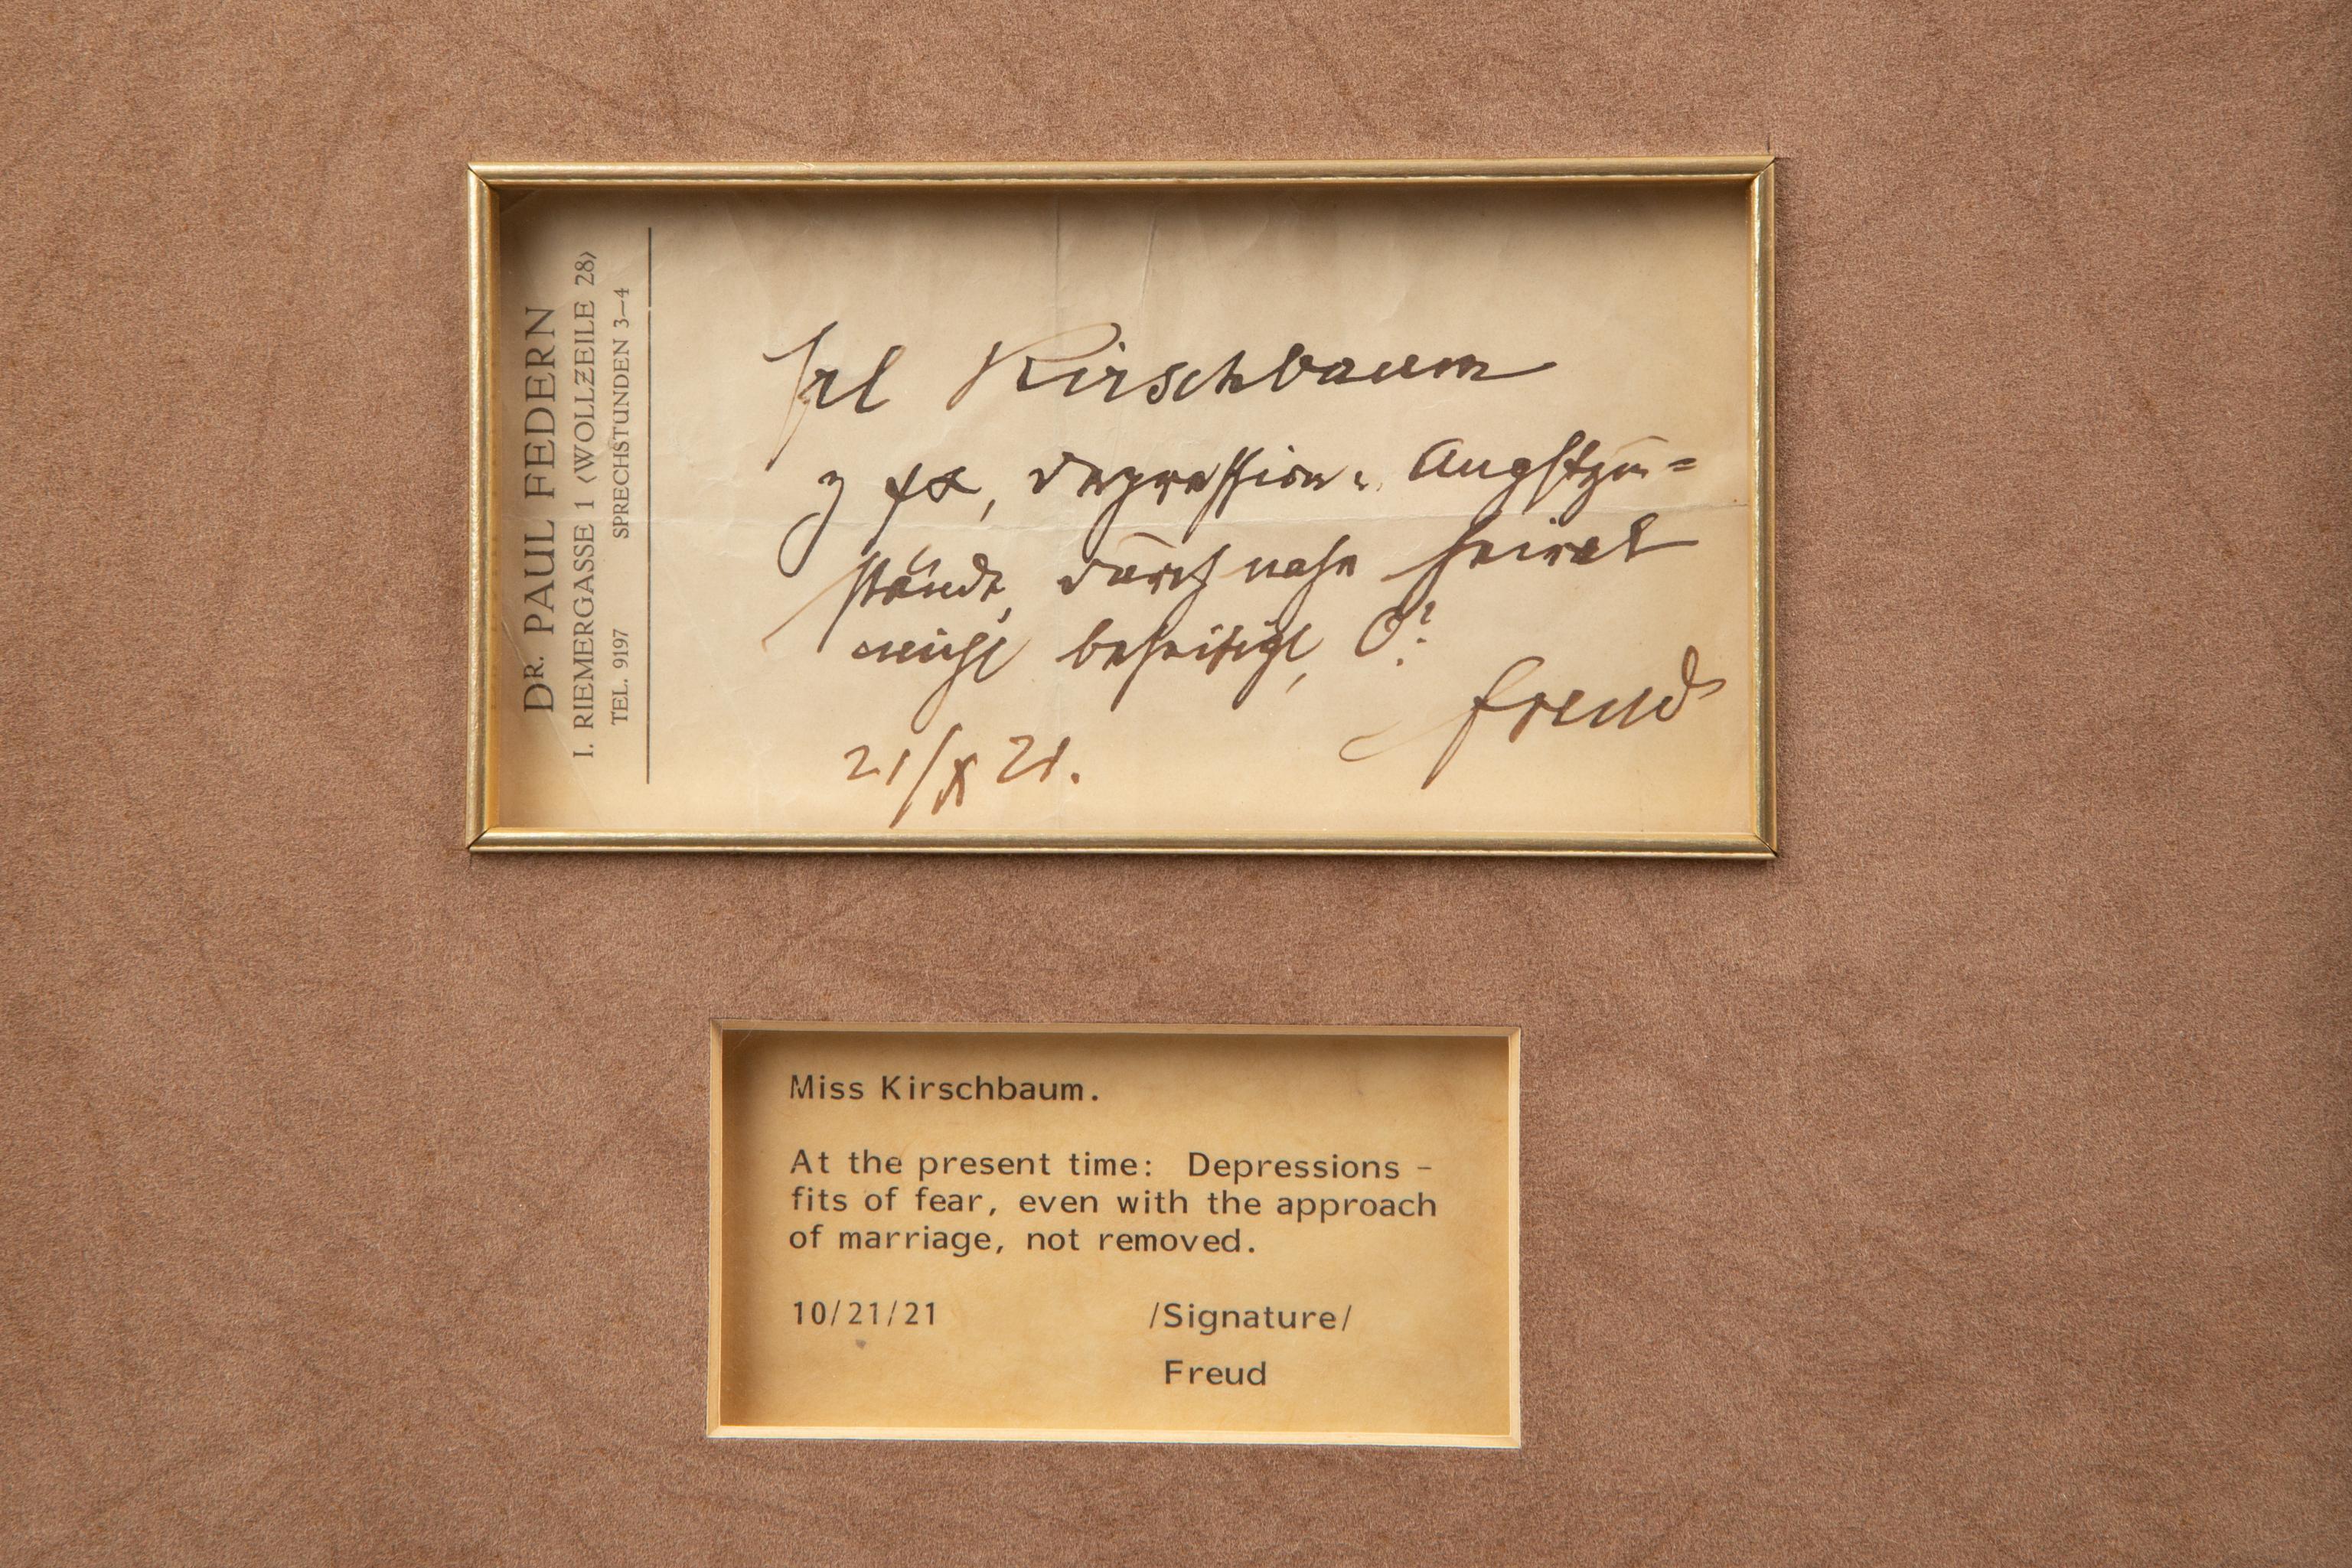 DR. PAUL FEDERN
I. RIEMERGASSE 1 (WOLLZEILE 28)
TEL. 9197 SPRECHSTUNDEN 3—4
Frl Kirschbaum
Depression Angstzu=
stände, durch nahe Heirat
nicht beseitigt, ?
Freud
21/X 21.
Miss Kirschbaum.
At the present time: Depressions –
fits of fear, even with the approach
of marriage, not removed.
10/21/21 /Signature/
Freud